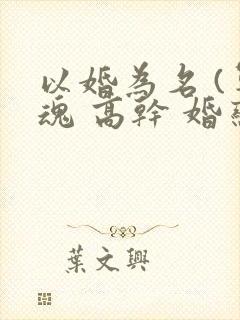 以婚為名(
魂 高幹 婚
葉文興